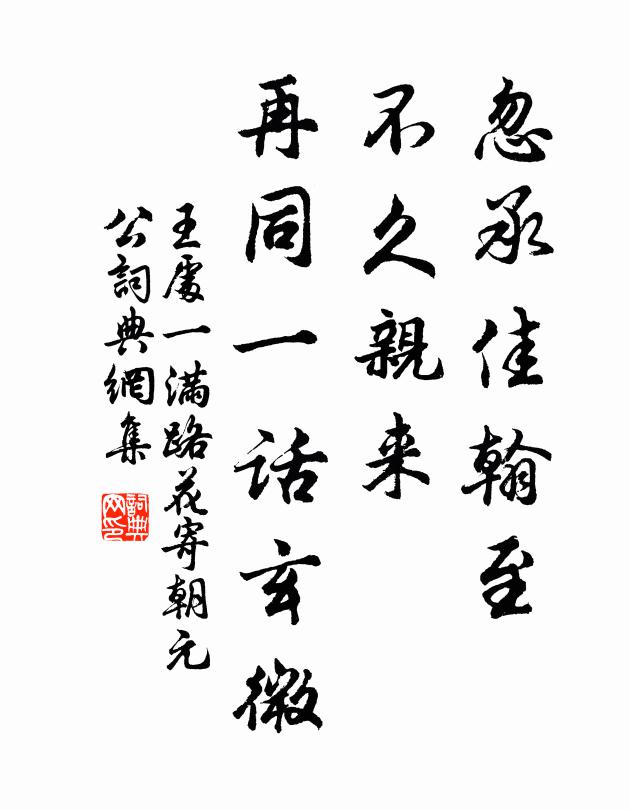 忽承佳翰至
不久親来
再同一话玄微
王處一满路花寄朝元
公詞典網集
詞典網印